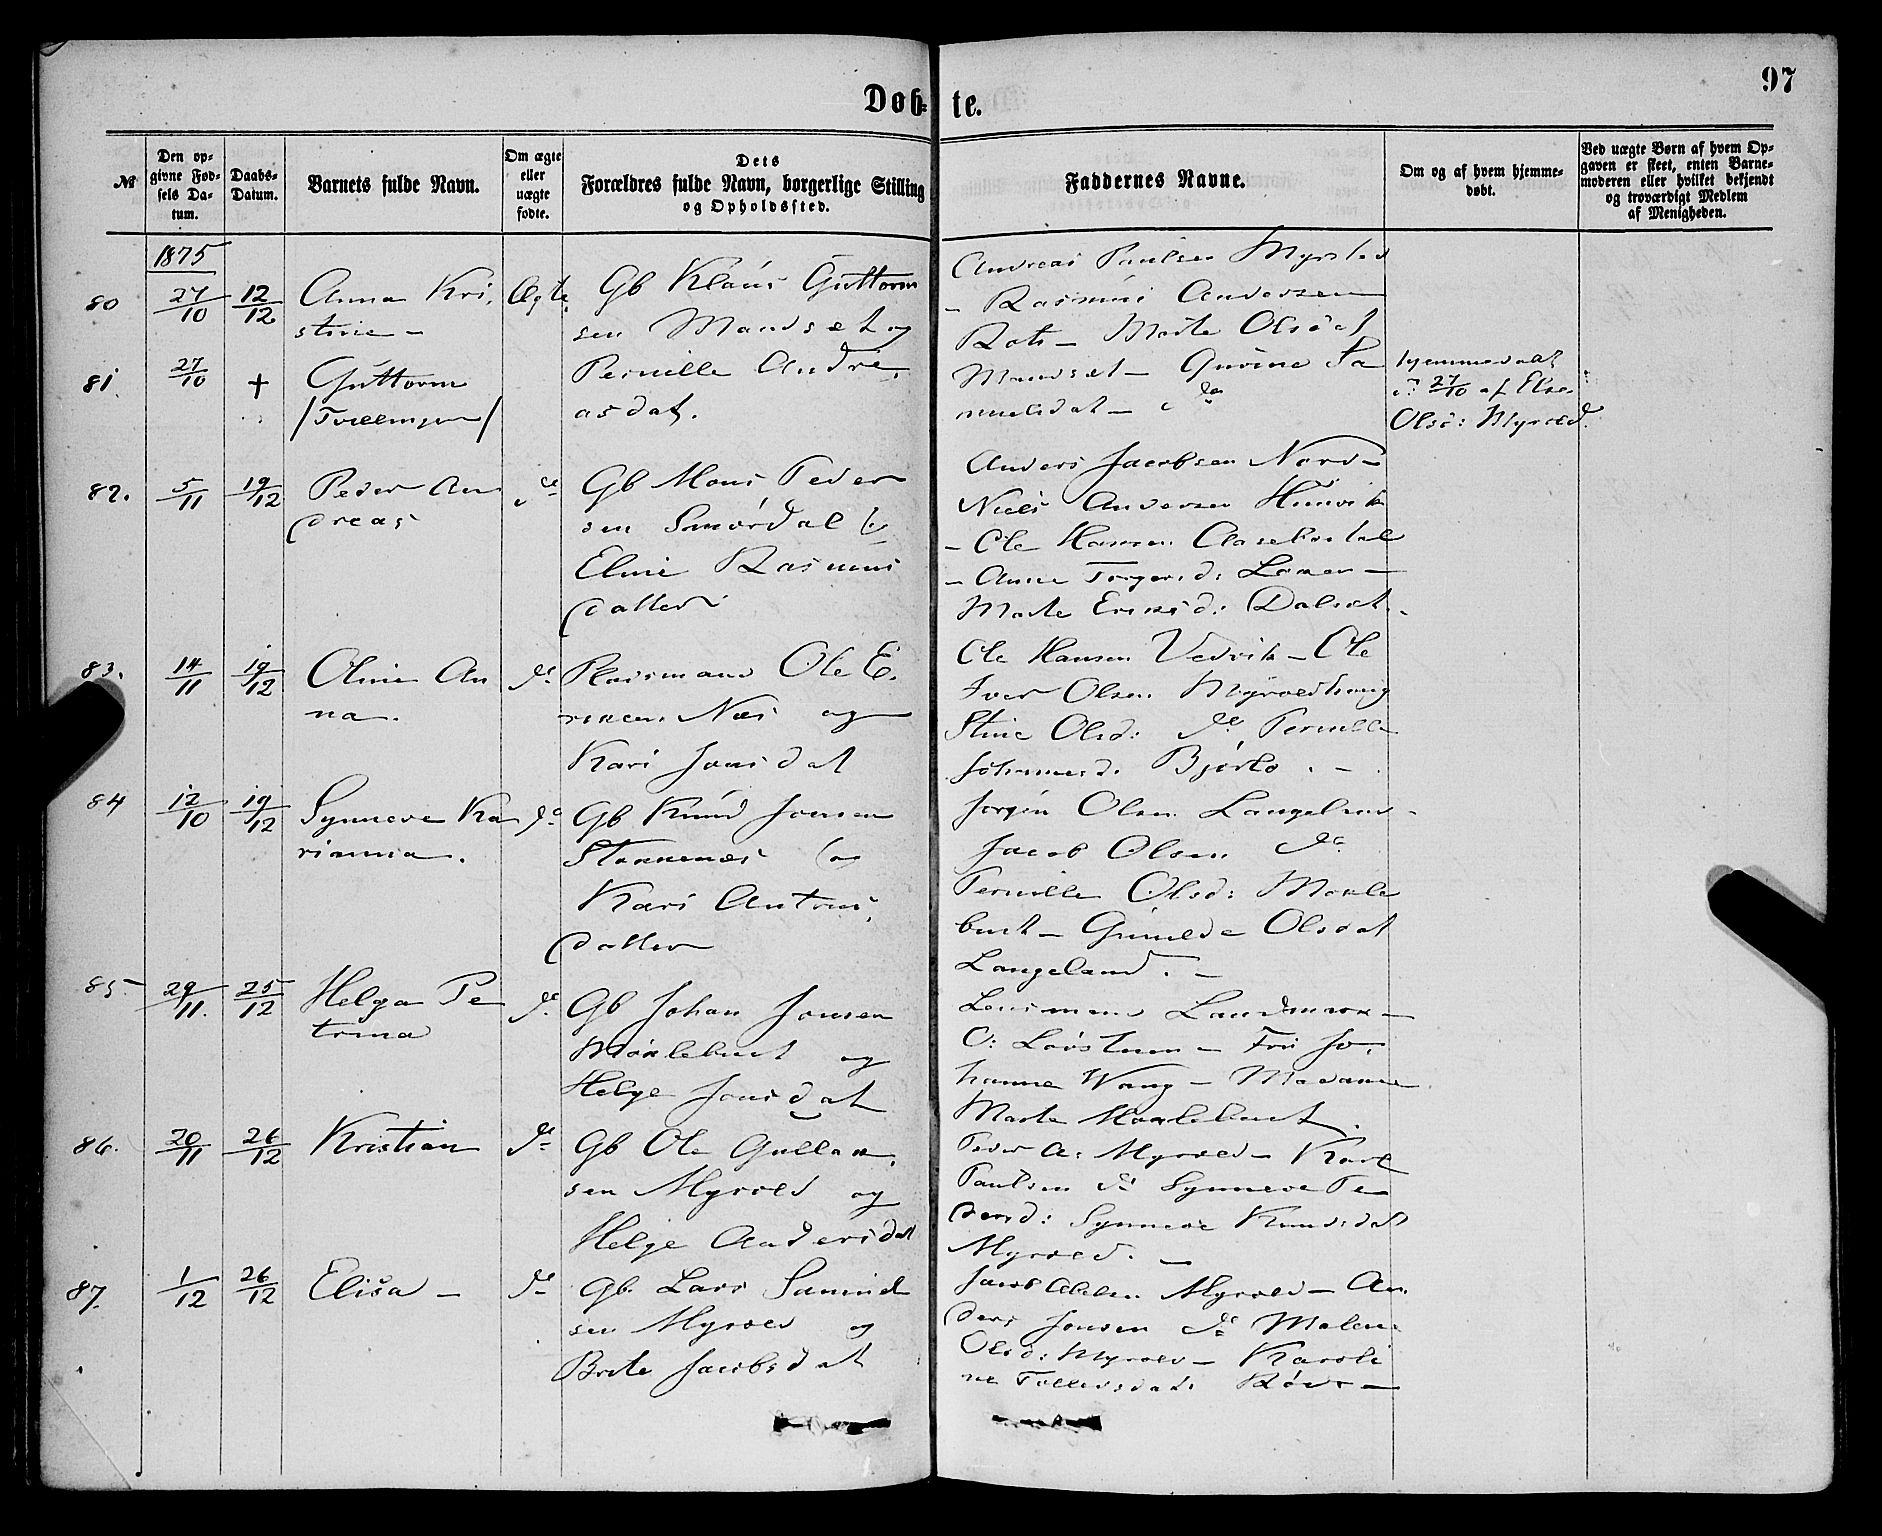 97
Døb- te.
№
Den op-
givne Fød-
sels Da-
tum.
Daabs-
Datum.
Barnets fulde Navn.
Om ægte
eller
uægte
fødte.
Dets
Forældres fulde Navn, borgerlige Stilling
og Opholdssted.
Faddernes Navne.
Om og af hvem hjemme-
døbt.
Ved uægte Børn af hvem Op-
gaven er skeet, enten Barne-
moderen eller hvilket bekjendt
og troværdigt Medlem
af Menigheden.
1875
80 27/10 12/12 Anna Kri-
stine –
Ægte
Gb Klaus Guttorm
sen Mandset og
Pernille Andre-
asdat.
Andreas Paulsen Myrold
– Rasmus Andersen
– Marte Olsd
Mandset – Gurine Sa
muelsdat – do
81. 27/10 + Guttorm
/Tvillinger/
hjemmedøbt
d: 27/10 af Else
Olsd: Myrold.
82. 5/11 19/12 Peder An
dreas
do
Gb Mons Peder
sen Smørdal og
Eline Rasmus
datter
Anders Jacobsen Nord –
Niels Andersen Hunvik
– Ole Hansen
– Anne Torgersd:
Marte Eriksd: Dalset.
83. 14/11 19/12 Oline An
na.
do
Pladsmand Ole E.
Næs og
Kari Jonsdat
Ole Hansen Vedvik – Ole
Iver Olsen Myroldhaug
Stine Olsd: do Pernille
Johannesd. Bjørlo. –
84 12/10 19/12 Synneve Ka
rianna.
do
Gb Knud Jonsen
Stokkenæs og
Kari Antoni-
datter
Jørgen Olsen Langeland –
Jacob Olsen do
Pernille Olsd: Maale
bust – Gunilde Olsdat
Langeland. –
85. 29/11. 25/12 Helga Pe
trina
do
Gb Johan Jonsen
Maalebust og
Helge Jonsdat
Lensmand Landmark –
O: Løvstuen – Fru Jo-
hanne Wang – Madame
Marte Maalebust.
86. 20/11 26/12 Kristian do
Gb Ole Gullak-
sen Myrold og
Helge Andersdat
Peder A: Myrold – Karl
Paulsen do Synneve Pe
dersd: Synneve Knudsdat
Myrold. –
87. 1/12 26/12 Elisa – do
Gb. Lars Samuel
sen Myrold og
Brite Jacobsdat
Jacob Myrold – An-
ders Jonsen do Malene
Olsd: Myrold – Karoli
ne Tollevsdat: –